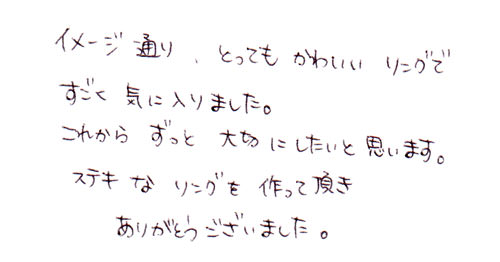 イメージ通り、とっても かわいい リングで
すごく 気に入りました。
これから ずっと 大切 にしたいと 思います。
ステキ な リングを 作って頂き
ありがとうございました。